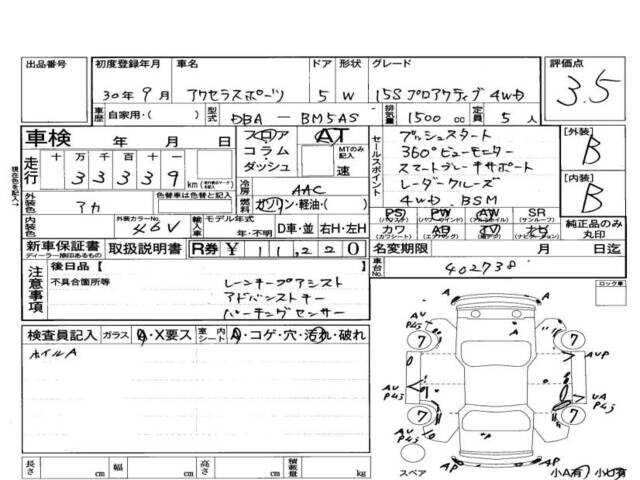 出品番号 初度登録年月 車名 ドア 形状 グレード 評価点
30年9月 アクセラスポーツ 5 W 15S プロアクティブ 4WD 3.5
車歴 自家用・( ) 型式 DBA - BM5AS 排気量 1500 cc 定員 5 人
車検 年 月 日 フロア AT
コラム MTのみ記入
ダッシュ 速
走行 十 万 千 百 十 一
3 3 3 3 9 km
冷房 AAC
外装色 アカ 色替車は色替前色 燃料 ガソリン・軽油・( )
内装色 外装カラーNo. 46V 輸入車 モデル年式 年・不明 D車・並 右H・左H
セールスポイント
プッシュスタート
360°ビューモニター
スマートブレーキサポート
レーダークルーズ
4WD. BSM
[外装] B
[内装] B
PS PW AW SR
(パワステ) (パワーウインド) (アルミホイル) (サンルーフ)
カワ AB TV ナビ
(カワシート) (エアバッグ) (ナビゲーション)
純正品のみ丸印
新車保証書 取扱説明書 R券 ¥ 11,220 名変期限 月 日迄
ディーラー捺印あるもの
車台No. 402738
注意事項
後日品【 】
不具合箇所等
レーンキープアシスト
アドバンストキー
パーキングセンサー
ロック車
検査員記入 ガラス A・X要ス 室内シート A・コゲ・穴・汚れ・破れ
ホイルA
AU P4J
A
7 7
AUP
AU P4J
UA P4J
7 7
AU P4J
A.P
AP AP
スペア 小A有 小U有
長さ cm 幅 cm 高さ cm 積載量 kg
現在色を記入→